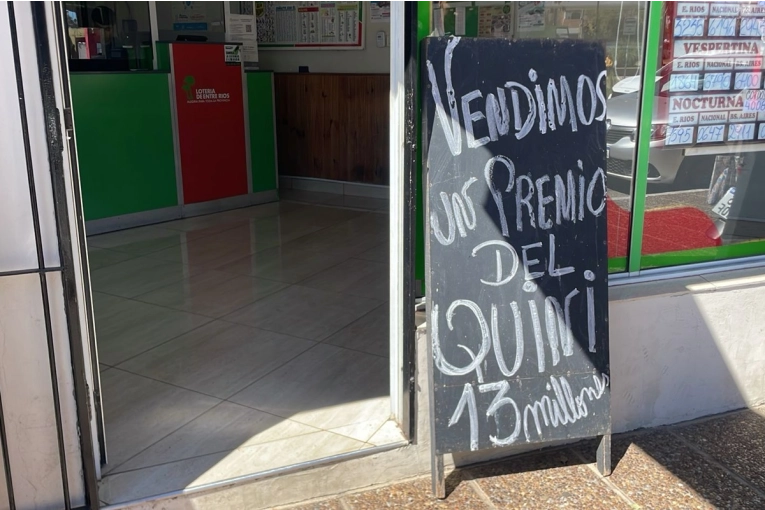 LOTERIA
DE ENTRE RIOS
VENDIMOS
UN PREMIO
DEL
QUINI
13 millones
E. RIOS NACIONAL BS. AIRES
VESPERTINA
E. RIOS NACIONAL BS. AIRES
NOCTURNA
E. RIOS NACIONAL BS. AIRES